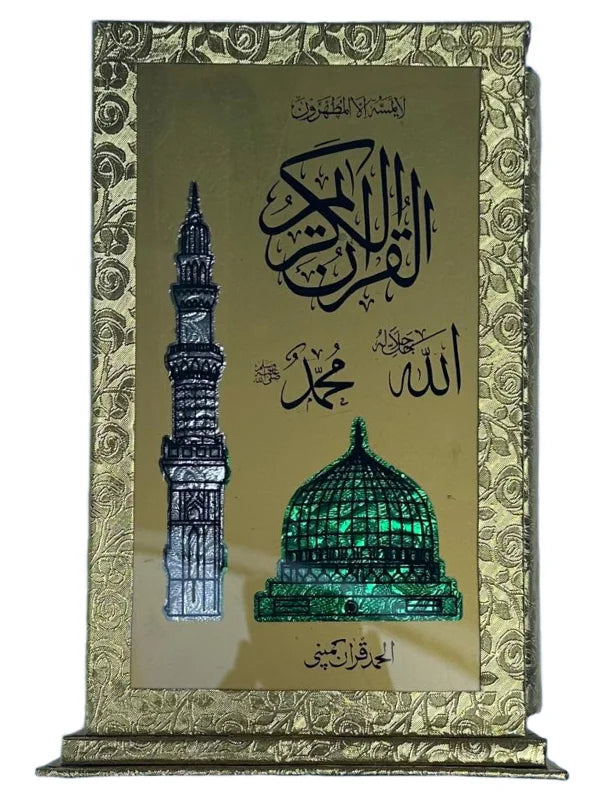 لا يمسه الا المطهرون
القرآن الكريم
الله جل جلاله
محمد صلی الله علیه وسلم
الحمد قرآن کمپنی